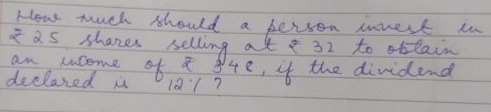 How much should a person invest in
₹ 25 shares selling at ₹ 32 to obtain
an income of ₹ if the dividend
declared is 12%?